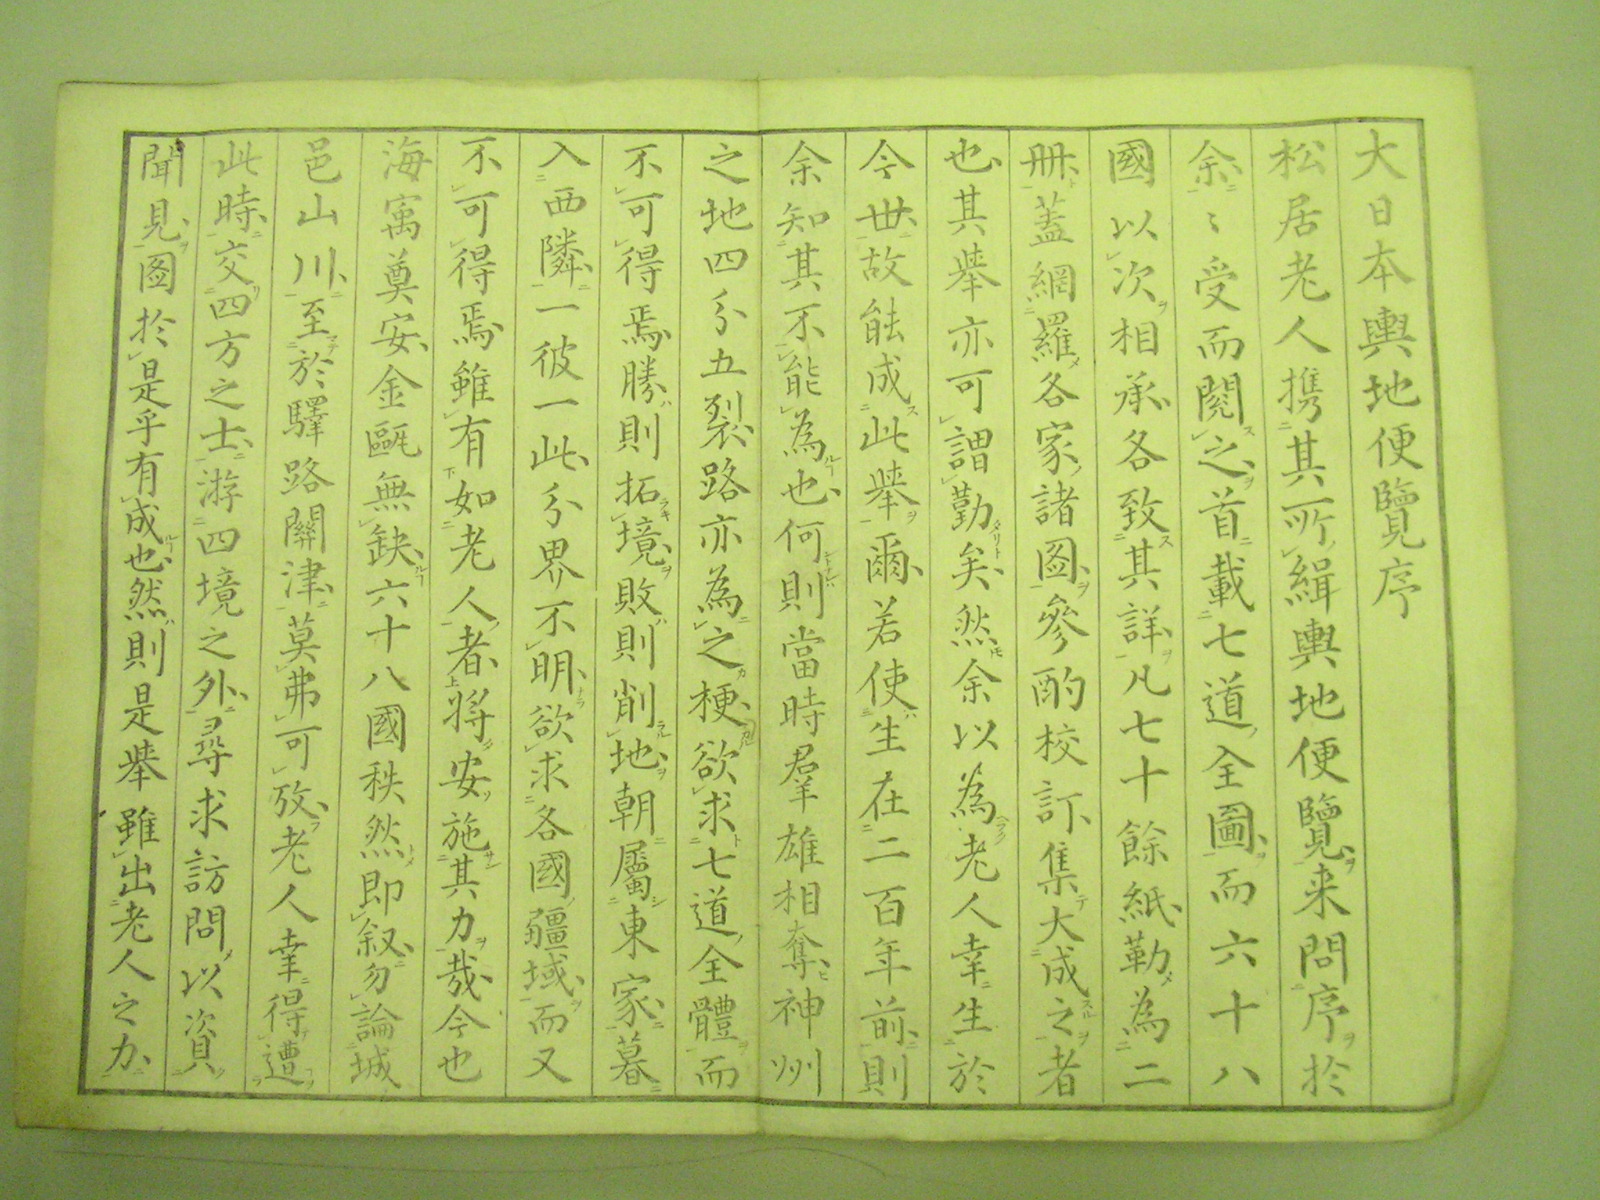 大日本輿地便覽序
松居老人携其所緝輿地便覽来問序於
余〻受而閱之首載七道全圖而六十八
國以次相承各致其詳凡七十餘紙勒為二
冊蓋網羅各家諸圖參酌校訂集大成之者
也其舉亦可謂勤矣然余以為老人幸生於
今世故能成此舉爾若使生在二百年前則
余知其不能為也何則當時羣雄相奪神州
之地四分五裂路亦為之梗欲求七道全體而
不可得焉勝則拓境敗則削地朝屬東家暮
入西隣一彼一此分界不明欲求各國疆域而又
不可得焉雖有如老人者將安施其力哉今也
海寓奠安金甌無缺六十八國秩然即叙勿論城
邑山川至於驛路關津莫弗可攷老人幸得遭
此時交四方之士游四境之外尋求訪問以資
聞見圖於是乎有成也然則是舉雖出老人之力